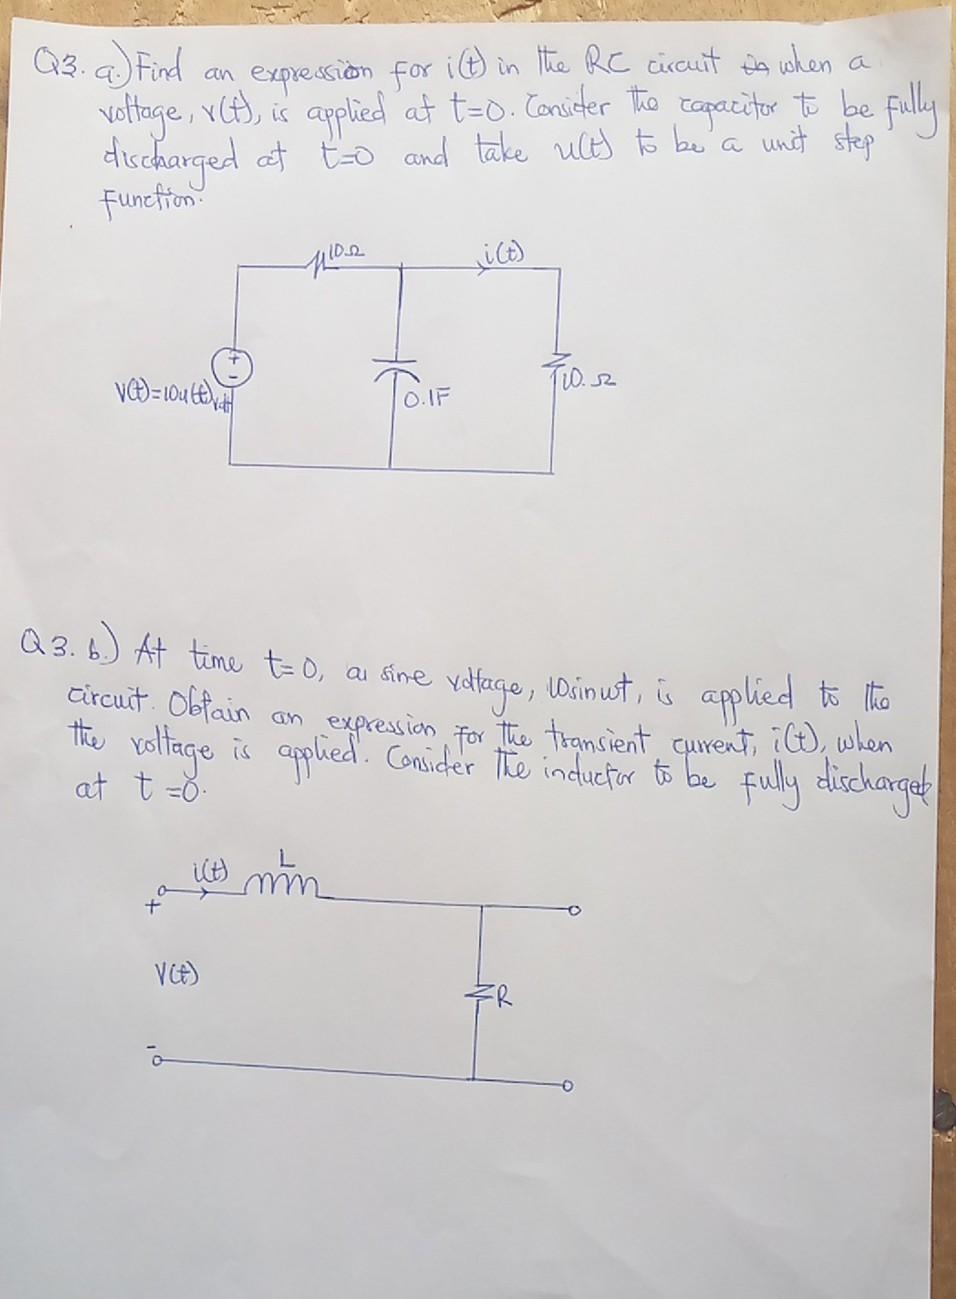 Q3. a.) Find an expression for i(t) in the RC circuit when a
voltage, v(t), is applied at t=0. Consider the capacitor to be fully
discharged at t=0 and take u(t) to be a unit step
function.
10Ω
i(t)
V(t)=10u(t) volt
0.1F
10Ω
Q3. b.) At time t=0, a sine voltage, 10sinωt, is applied to the
circuit. Obtain an expression for the transient current, i(t), when
the voltage is applied. Consider the inductor to be fully discharged
at t=0.
i(t)
L
+
V(t)
R
-